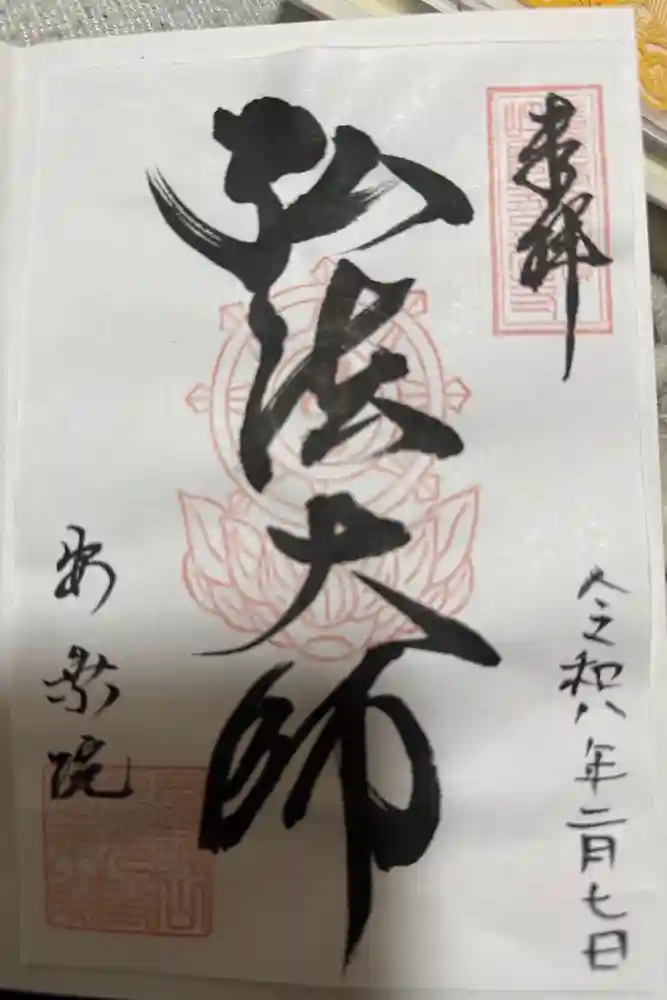 奉拝
令和八年二月七日
弘法大師